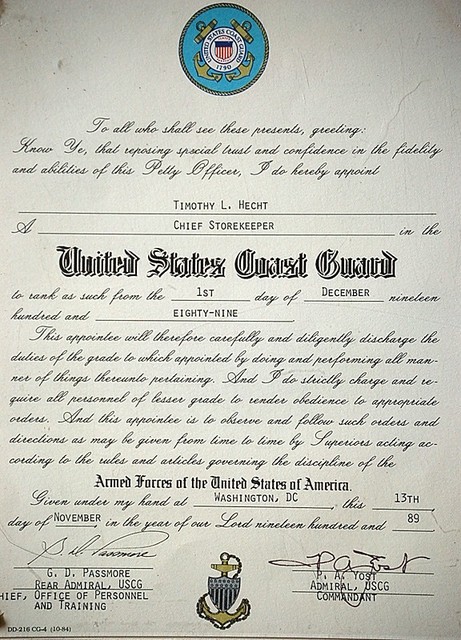 UNITED STATES COAST GUARD
1790
To all who shall see these presents, greeting:
Know Ye, that reposing special trust and confidence in the fidelity
and abilities of this Petty Officer, I do hereby appoint
TIMOTHY L. HECHT
A CHIEF STOREKEEPER in the
United States Coast Guard
to rank as such from the 1ST day of DECEMBER nineteen
hundred and EIGHTY-NINE
This appointee will therefore carefully and diligently discharge the
duties of the grade to which appointed by doing and performing all man-
ner of things thereunto pertaining. And I do strictly charge and re-
quire all personnel of lesser grade to render obedience to appropriate
orders. And this appointee is to observe and follow such orders and
directions as may be given from time to time by Superiors acting ac-
cording to the rules and articles governing the discipline of the
Armed Forces of the United States of America.
Given under my hand at WASHINGTON, DC, this 13TH
day of NOVEMBER in the year of our Lord nineteen hundred and 89
G. D. Passmore
G. D. PASSMORE
REAR ADMIRAL, USCG
HIEF, OFFICE OF PERSONNEL
AND TRAINING
P A Yost
P. A. YOST
ADMIRAL, USCG
COMMANDANT
DD-216 CG-4 (10-84)